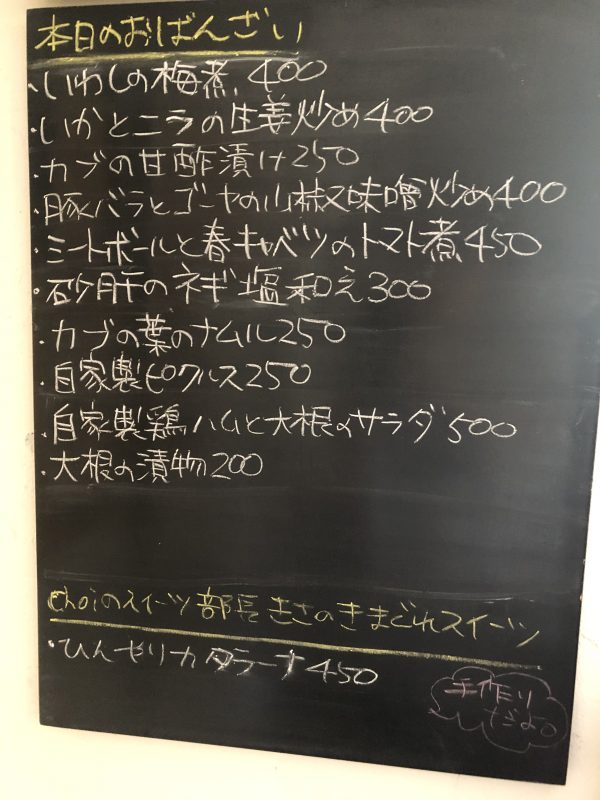 本日のおばんざい
・いわしの梅煮 400
・いかとニラの生姜炒め400
・カブの甘酢漬け250
・豚バラとゴーヤの山椒味噌炒め400
・ミートボールと春キャベツのトマト煮450
・砂肝のネギ塩和え300
・カブの葉のナムル250
・自家製ピクルス250
・自家製鶏ハムと大根のサラダ500
・大根の漬物200
Choiのスイーツ部長 きさのきまぐれスイーツ
・ひんやりカタラーナ450
手作り
だよ。